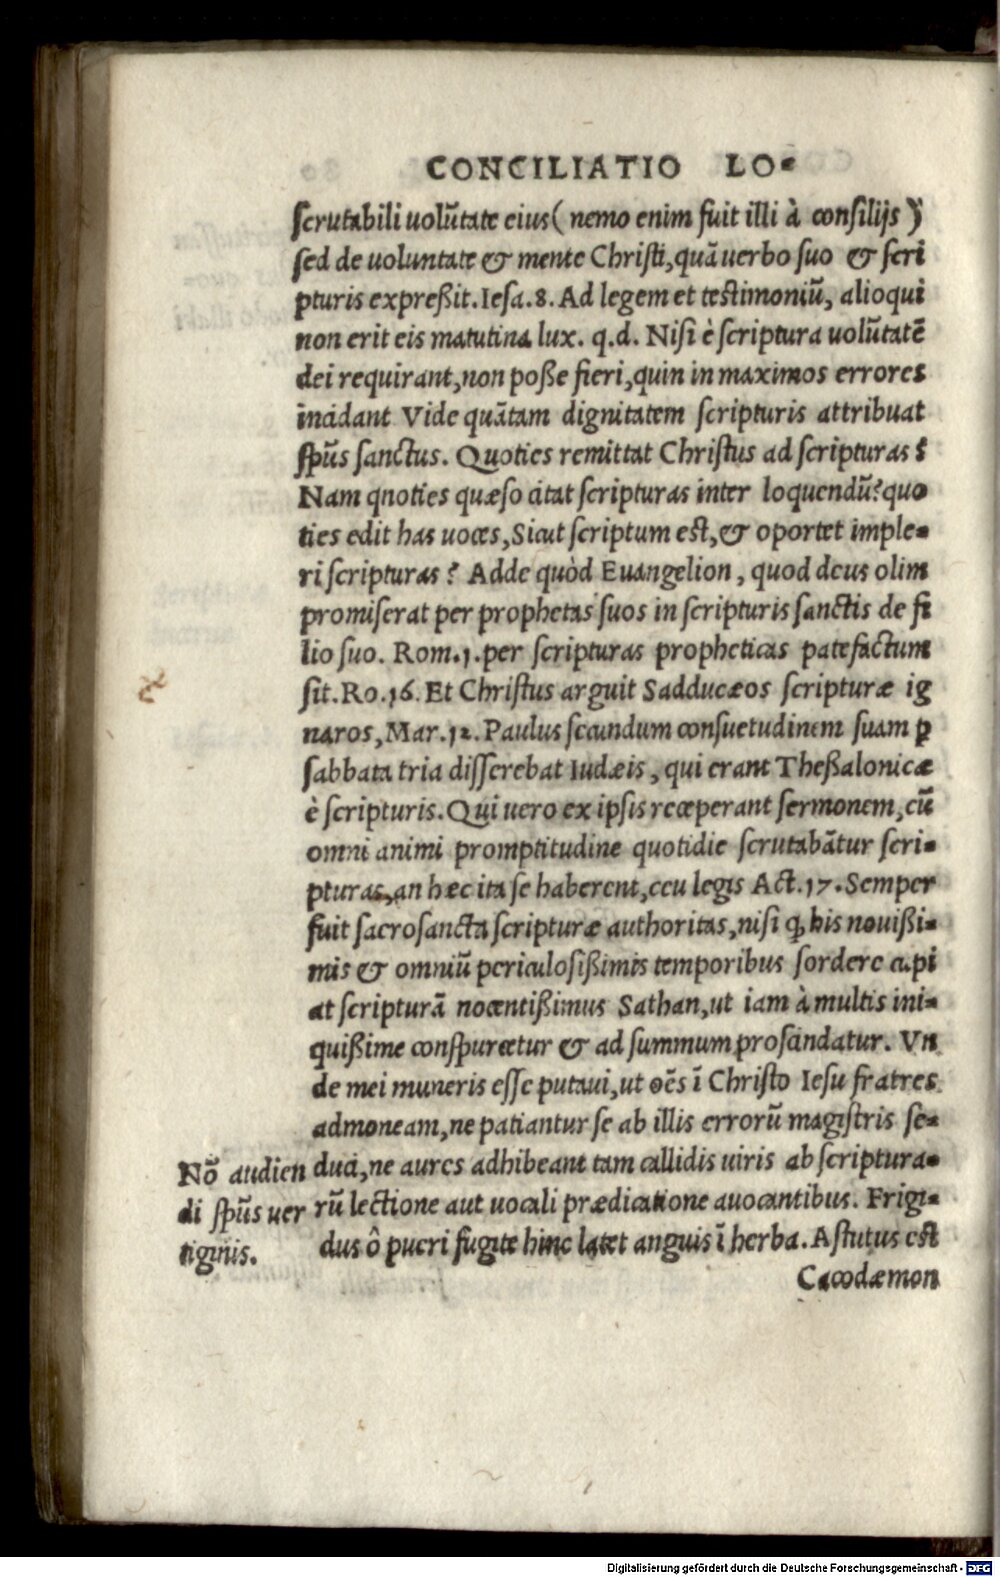 CONCILIATIO LO-
scrutabili uolũtate eius (nemo enim fuit illi à consilijs)
sed de uoluntate & mente Christi, quã uerbo suo & scri
pturis expreßit. Iesa. 8. Ad legem et testimoniũ, alioqui
non erit eis matutina lux. q.d. Nisi è scriptura uolũtatẽ
dei requirant, non poße fieri, quin in maximos errores
incidant Vide quãtam dignitatem scripturis attribuat
spũs sanctus. Quoties remittat Christus ad scripturas?
Nam qnoties quæso citat scripturas inter loquendũ? quo
ties edit has uoces, Sicut scriptum est, & oportet imple-
ri scripturas? Adde quòd Euangelion, quod deus olim
promiserat per prophetas suos in scripturis sanctis de fi
lio suo. Rom. 1. per scripturas propheticas patefactum
sit. Ro. 16. Et Christus arguit Sadducæos scripturæ ig
naros, Mar. 12. Paulus secundum consuetudinem suam ꝑ
sabbata tria disserebat Iudæis, qui erant Theßalonicæ
è scripturis. Qui uero ex ipsis receperant sermonem, cũ
omni animi promptitudine quotidie scrutabãtur scri-
pturas, an hæc ita se haberent, ceu legis Act. 17. Semper
fuit sacrosancta scripturæ authoritas, nisi ꝙ his nouißi-
mis & omniũ periculosißimis temporibus sordere cupi
at scripturã nocentißimus Sathan, ut iam à multis ini-
quißime conspurcetur & ad summum proscindatur. Vn
de mei muneris esse putaui, ut oẽs ĩ Christo Iesu fratres
admoneam, ne patiantur se ab illis errorũ magistris se-
duci, ne aures adhibeant tam callidis uiris ab scriptura-
rũ lectione aut uocali prædicatione auocantibus. Frigi-
dus ô pueri fugite hinc latet anguis ĩ herba. Astutus est
Cacodæmon
Nõ audien
di spũs uer
tiginis.
Digitalisierung gefördert durch die Deutsche Forschungsgemeinschaft - DFG